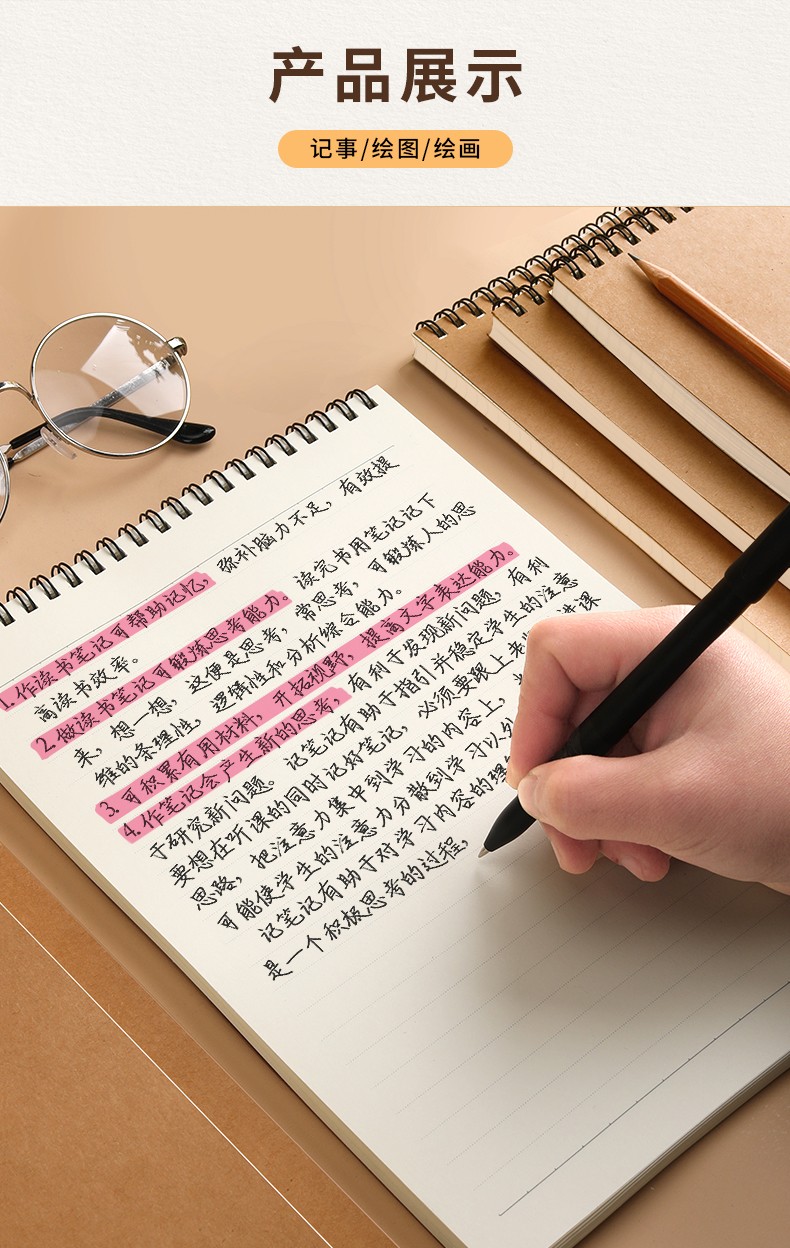 产品展示
记事/绘图/绘画
1.作读书笔记可帮助记忆，弥补脑力不足，有效提
高读书效率。
2.做读书笔记可锻炼思考能力。读完书用笔记记下
来，想一想，这便是思考，常思考，可锻炼人的思
维的条理性，逻辑性和分析综合能力。
3.可积累有用材料，开拓视野，提高文字表达能力。
4.作笔记会产生新的思考，有利于发现新问题，有利
于研究新问题。记笔记有助于指引并稳定学生的注意
要想在听课的同时记好笔记，必须要跟上老 讲课
思路，把注意力集中到学习的内容上，
可能使学生的注意力分散到学习以外
记笔记有助于对学习内容的理
是一个积极思考的过程，